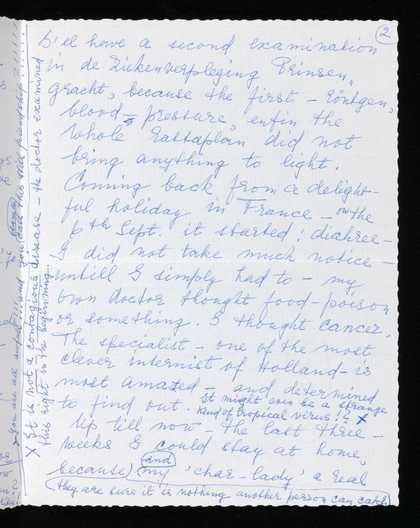 (2)
I'll have a second examination
in de Ziekenverpleging Prinsen,
gracht, because the first – Röntgen,
blood – pressure, enfin the
whole rattaplan did not
bring anything to light.
Coming back from a delight-
ful holiday in France – on the
6th Sept. it started: diahree –
I did not take much notice
untill I simply had to – my
own doctor thought food-poison
or something, I thought cancer.
The specialist – one of the most
clever internist of Holland – is
most amazed – and determined
to find out. It might even be a strange
kind of tropical virus!? X
Up till now – the last three –
weeks I could stay at home,
because (and) my 'char-lady' a real
(they are sure it is nothing another person can catch
X It is not a contagious disease – the doctor examined
this right in the beginning.